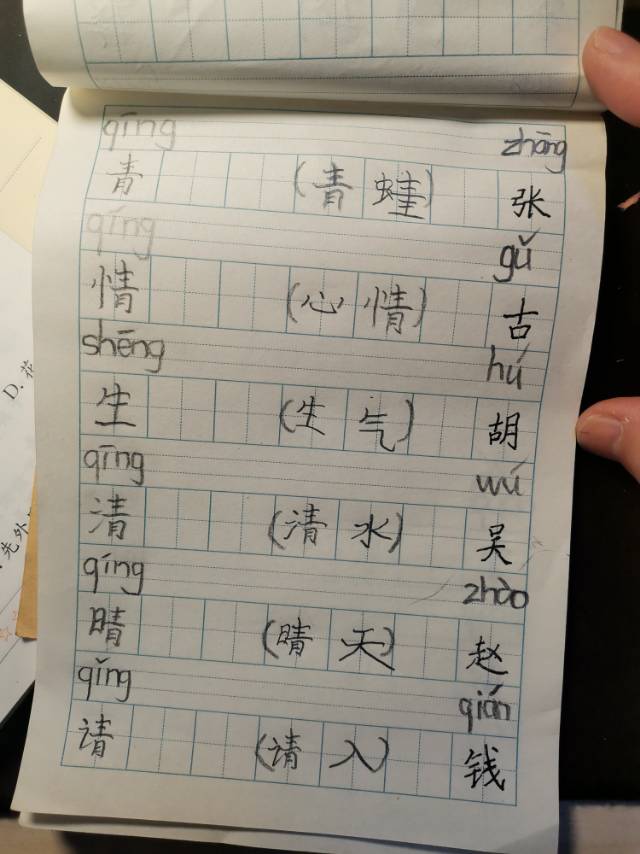 qīng zhāng
青 (青蛙) 张
qíng gǔ
情 (心情) 古
shēng hú
生 (生气) 胡
qīng wú
清 (清水) 吴
qíng zhào
晴 (晴天) 赵
qǐng qián
请 (请入) 钱
D. 花
先外